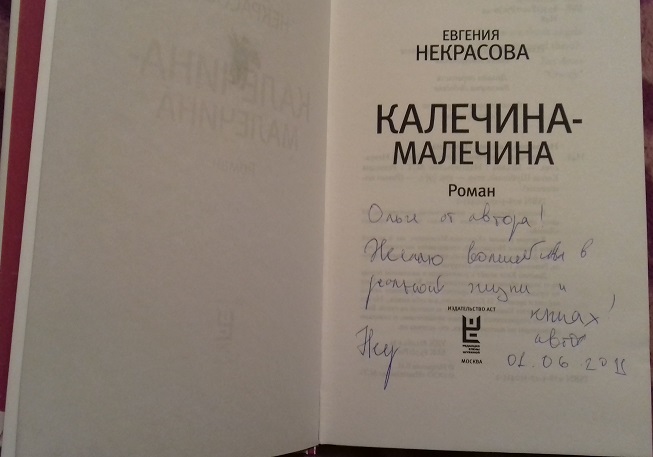 ЕВГЕНИЯ
НЕКРАСОВА
КАЛЕЧИНА-
МАЛЕЧИНА
Роман
Ольге от автора!
Желаю волшебства в
реальной жизни и
книгах!
ИЗДАТЕЛЬСТВО АСТ
МОСКВА
01.06.20